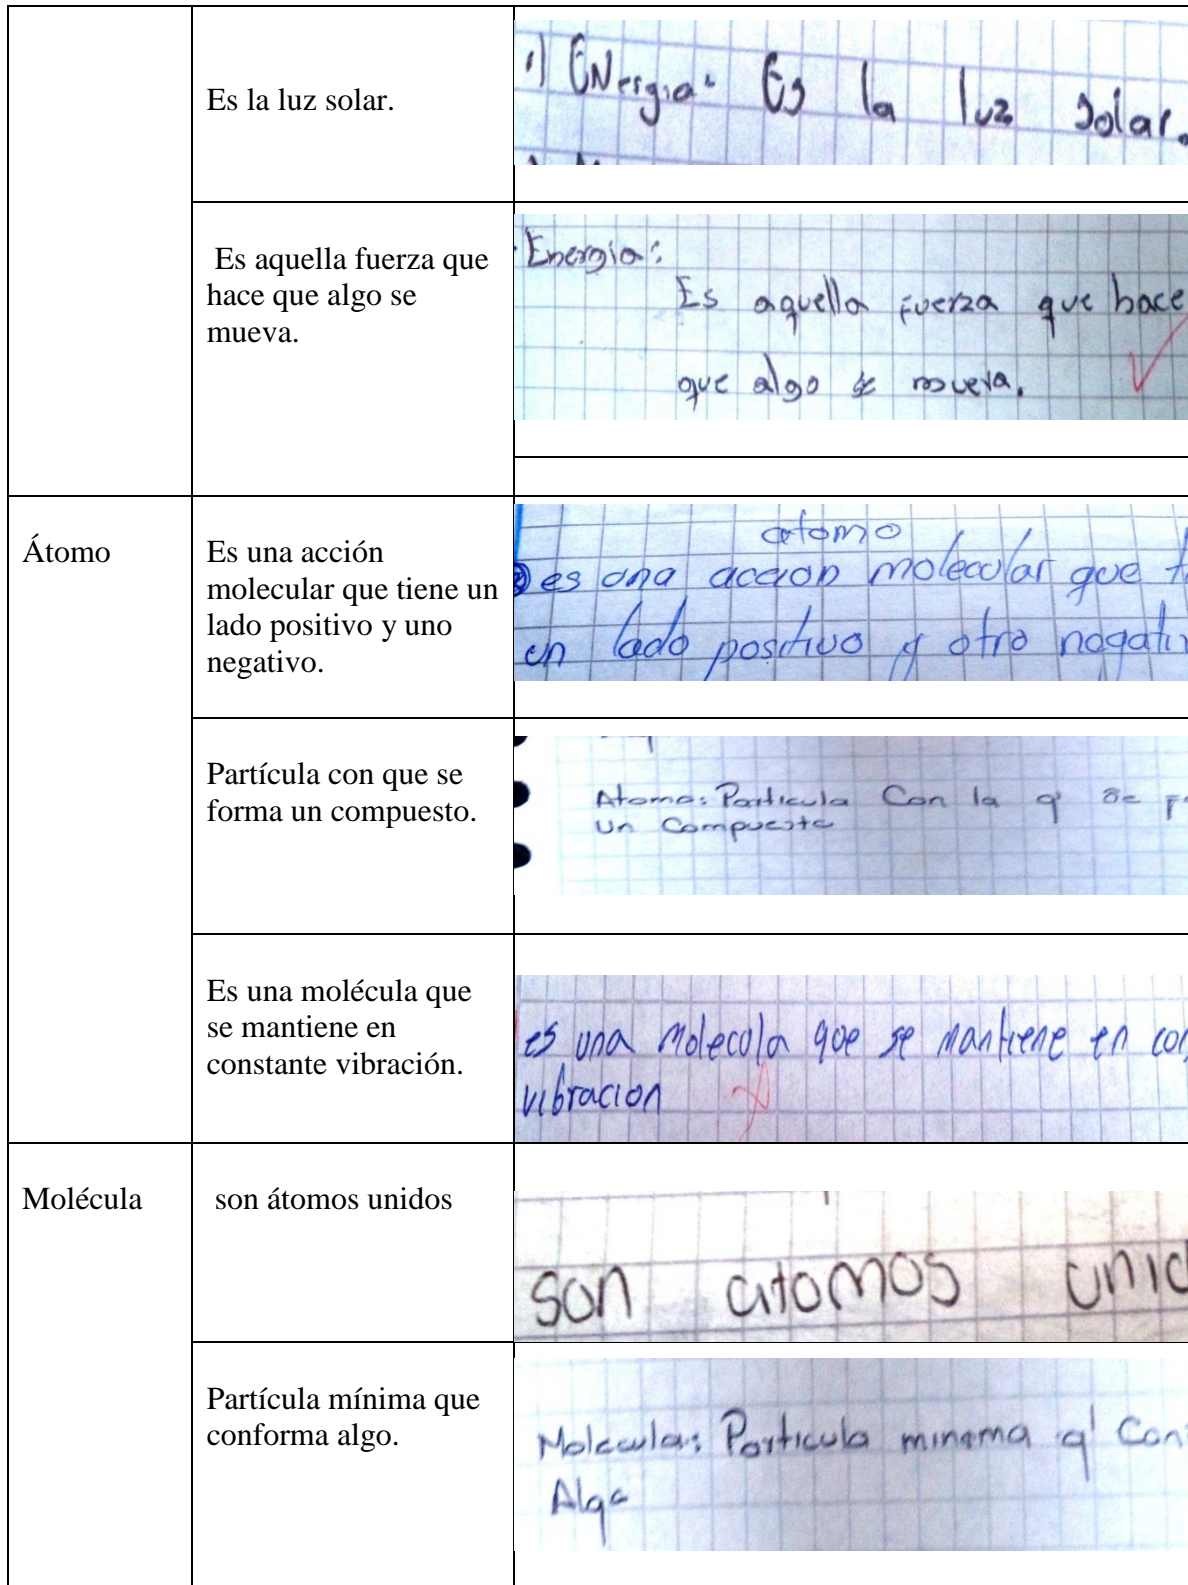 Es la luz solar.
1) ENergia: Es la luz solar.
Es aquella fuerza que
hace que algo se
mueva.
Energia:
Es aquella fuerza que hace
que algo se mueva.
Átomo
Es una acción
molecular que tiene un
lado positivo y uno
negativo.
atomo
es una accion molecular que
un lado positivo y otro
Partícula con que se
forma un compuesto.
Atomo: Particula Con la q' se
un Compuesto
Es una molécula que
se mantiene en
constante vibración.
es una Molecula que se mantiene en
vibracion
Molécula
son átomos unidos
son atomos
Partícula mínima que
conforma algo.
Molecula: Particula minima q'
Algo